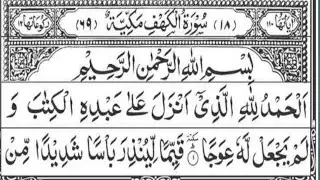 اٰیَاتُهَا ۱۱۰ (۱۸) سُوْرَةُ الْكَهْفِ مَكِّیَّةٌ (۶۹) رُكُوْعَاتُهَا ۱۲
بِسْمِ اللّٰهِ الرَّحْمٰنِ الرَّحِیْمِ
اَلْحَمْدُ لِلّٰهِ الَّذِیْۤ اَنْزَلَ عَلٰى عَبْدِهِ الْكِتٰبَ وَ
لَمْ یَجْعَلْ لَّهٗ عِوَجًا ؕ ۱ قَیِّمًا لِّیُنْذِرَ بَاْسًا شَدِیْدًا مِّنْ